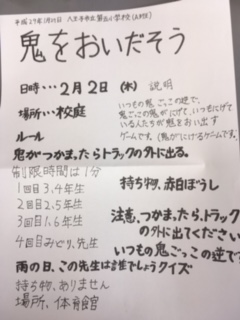 鬼をおいだそう
日時・・・2月2日(木) 説明
場所・・・校庭
いつもの鬼ごっこの逆で、
鬼ごっこの鬼がにげて、いつもにげて
いる人たちが鬼をおい出す
ゲームです。(鬼がにげるゲームです。
ルール
鬼がつかまったらトラックの外に出る。
制限時間は1分
1回目3.4年生
2回目2.5年生
3回目1.6年生
4回目みどり、先生
持ち物、赤白ぼうし
注意、つかまったら、トラック
の外に出てください
いつもの鬼ごっこの逆で
雨の日、この先生は誰でしょうクイズ
持ち物、ありません
場所、体育館